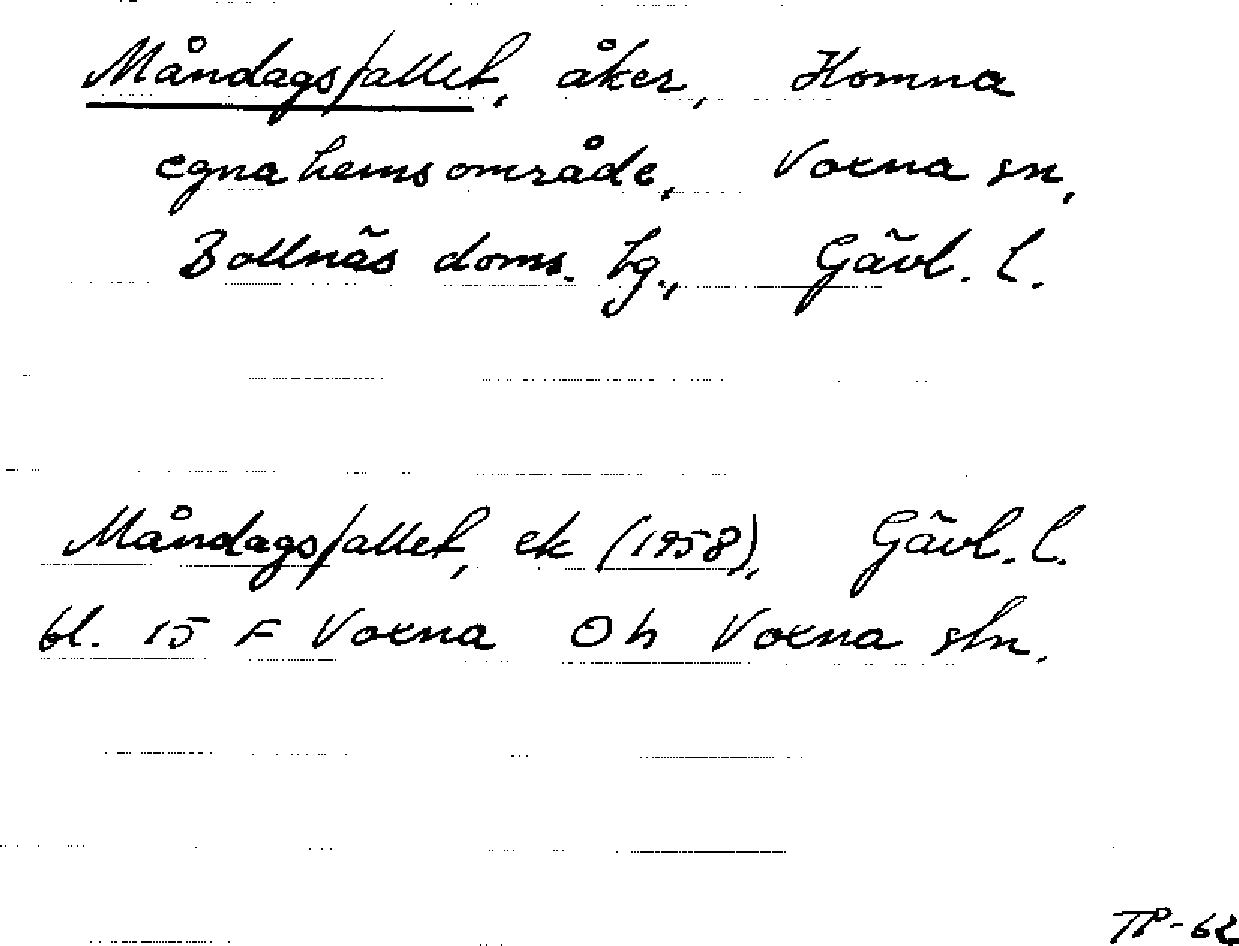 Måndagsfallet, åker, Homna
egnahemsområde, Voxna sn,
Bollnäs doms. tg., Gävl. l.
Måndagsfallet, ek (1958), Gävl. l.
bl. 15 F Voxna Øh Voxna stn.
TP-62